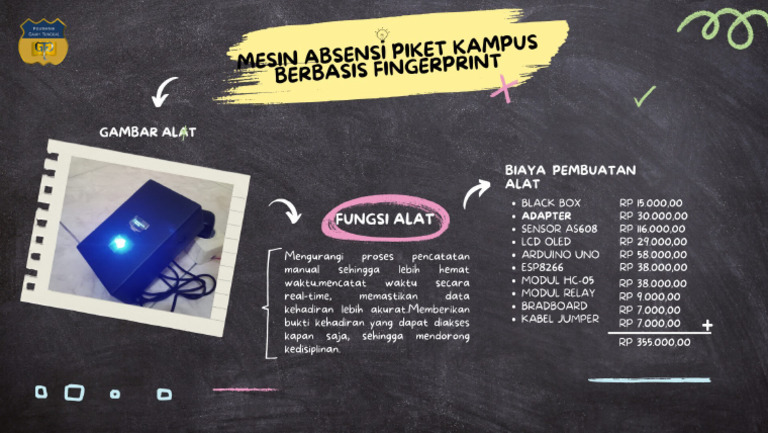 MESIN ABSENSI PIKET KAMPUS
BERBASIS FINGERPRINT
GAMBAR ALAT
FUNGSI ALAT
Mengurangi proses pencatatan
manual sehingga lebih hemat
waktu.mencatat waktu secara
real-time, memastikan data
kehadiran lebih akurat.Memberikan
bukti kehadiran yang dapat diakses
kapan saja, sehingga mendorong
kedisiplinan.
BIAYA PEMBUATAN
ALAT
BLACK BOX RP 15.000,00
ADAPTER RP 30.000,00
SENSOR AS608 RP 116.000,00
LCD OLED RP 29.000,00
ARDUINO UNO RP 58.000,00
ESP8266 RP 38.000,00
MODUL HC-05 RP 38.000,00
MODUL RELAY RP 9.000,00
BRADBOARD RP 7.000,00
KABEL JUMPER RP 7.000,00
+
RP 355.000,00